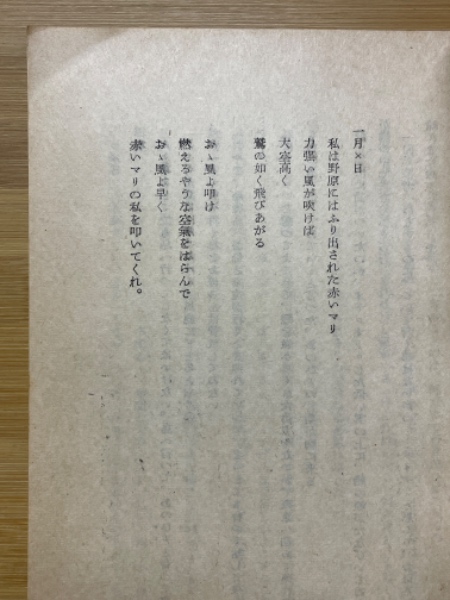 一月×日
私は野原にほふり出された赤いマリ
力强い風が吹けば
大空高く
鷲の如く飛びあがる
おゝ風よ叩け
燃えるやうな空氣をはらんで
おゝ風よ早く
赤いマリの私を叩いてくれ。